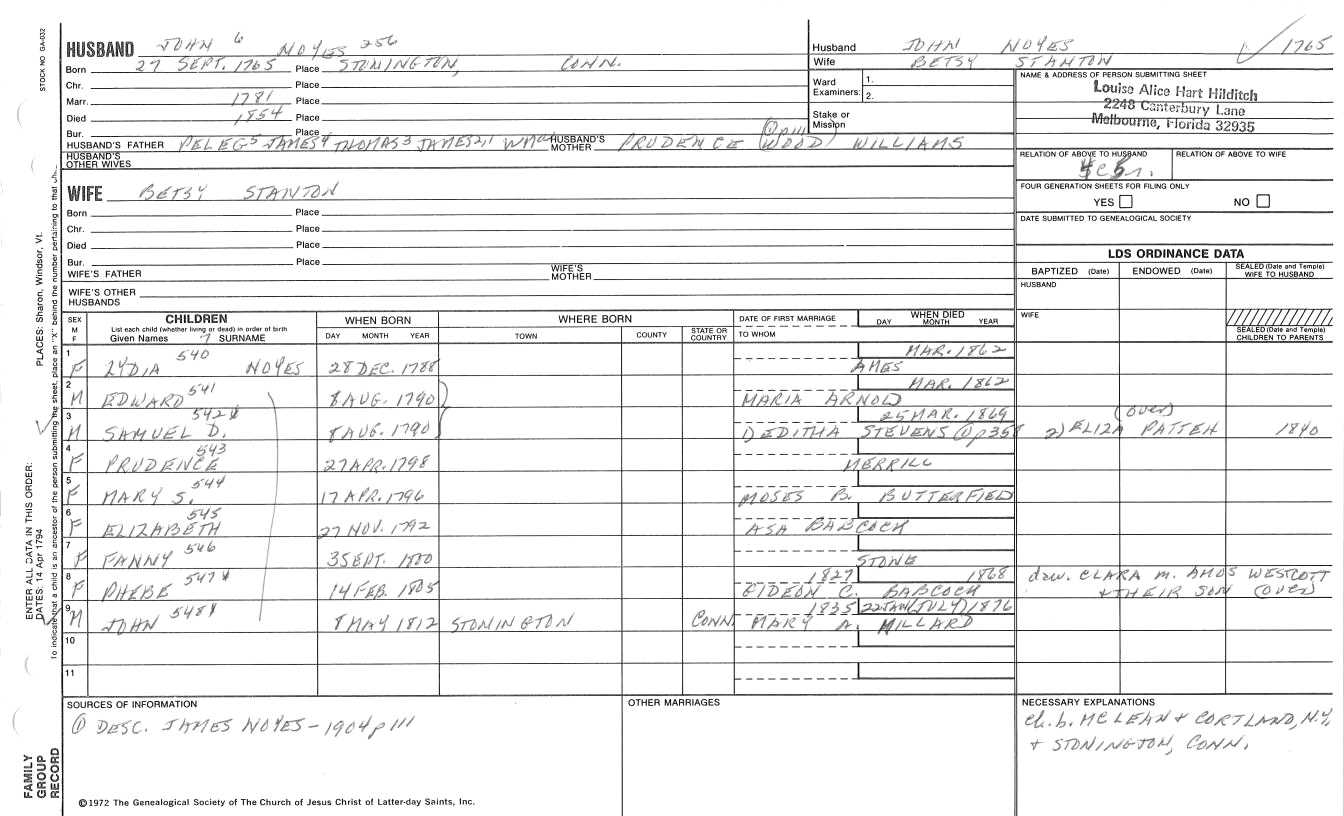 STOCK NO GA-032
HUSBAND JOHN 6 NOYES 256
Born 27 SEPT. 1765 Place STONINGTON, CONN.
Chr. Place
Marr. 1781 Place
Died 1854 Place
Bur. Place
HUSBAND'S FATHER PELEG5 JAMES4 THOMAS3 JAMES2,1 WM HUSBAND'S MOTHER PRUDENCE (WOOD) WILLIAMS
① p 111
HUSBAND'S OTHER WIVES
Husband JOHN NOYES
Wife BETSY STANTON
1765
Ward Examiners: 1.
2.
Stake or Mission
NAME & ADDRESS OF PERSON SUBMITTING SHEET
Louise Alice Hart Hilditch
2248 Canterbury Lane
Melbourne, Florida 32935
RELATION OF ABOVE TO HUSBAND RELATION OF ABOVE TO WIFE
FOUR GENERATION SHEETS FOR FILING ONLY
YES NO
DATE SUBMITTED TO GENEALOGICAL SOCIETY
WIFE BETSY STANTON
Born Place
Chr. Place
Died Place
Bur. Place
WIFE'S FATHER WIFE'S MOTHER
WIFE'S OTHER HUSBANDS
LDS ORDINANCE DATA
BAPTIZED (Date) ENDOWED (Date) SEALED (Date and Temple) WIFE TO HUSBAND
HUSBAND
WIFE
SEALED (Date and Temple) CHILDREN TO PARENTS
SEX M F
CHILDREN
List each child (whether living or dead) in order of birth
Given Names 7 SURNAME
WHEN BORN
DAY MONTH YEAR
WHERE BORN
TOWN COUNTY STATE OR COUNTRY
DATE OF FIRST MARRIAGE
TO WHOM
WHEN DIED
DAY MONTH YEAR
1 F LYDIA 540 NOYES 28 DEC. 1788 MAR. 1862
AMES
2 M EDWARD 541 8 AUG. 1790 MAR. 1862
MARIA ARNOLD
3 M SAMUEL D. 542 8 AUG. 1790 25 MAR. 1869 (OVER)
DEDITHA STEVENS ① p 35 2) ELIZA PATTEN 1840
4 F PRUDENCE 543 27 APR. 1798 MERRILL
5 F MARY S. 544 17 APR. 1796 MOSES B. BUTTERFIELD
6 F ELIZABETH 545 27 NOV. 1792 ASA BABCOCK
7 F FANNY 546 3 SEPT. 1800 STONE
8 F PHEBE 547 14 FEB. 1805 1827 1868
GIDEON C. BABCOCK
dau. CLARA M. AMOS WESTCOTT
& THEIR SON (OVER)
9 M JOHN 548 8 MAY 1812 STONINGTON CONN 1835 22 JAN (JULY) 1876
MARY A. MILLARD
10
11
SOURCES OF INFORMATION
① DESC. JAMES NOYES - 1904 p 111
OTHER MARRIAGES
NECESSARY EXPLANATIONS
Ch. b. MCLEAN & CORTLAND, N.Y,
& STONINGTON, CONN.
©1972 The Genealogical Society of The Church of Jesus Christ of Latter-day Saints, Inc.
FAMILY GROUP RECORD
ENTER ALL DATA IN THIS ORDER:
DATES: 14 Apr 1794
PLACES: Sharon, Windsor, Vt.
To indicate that a child is an ancestor of the person submitting the sheet, place an "X" behind the number pertaining to that